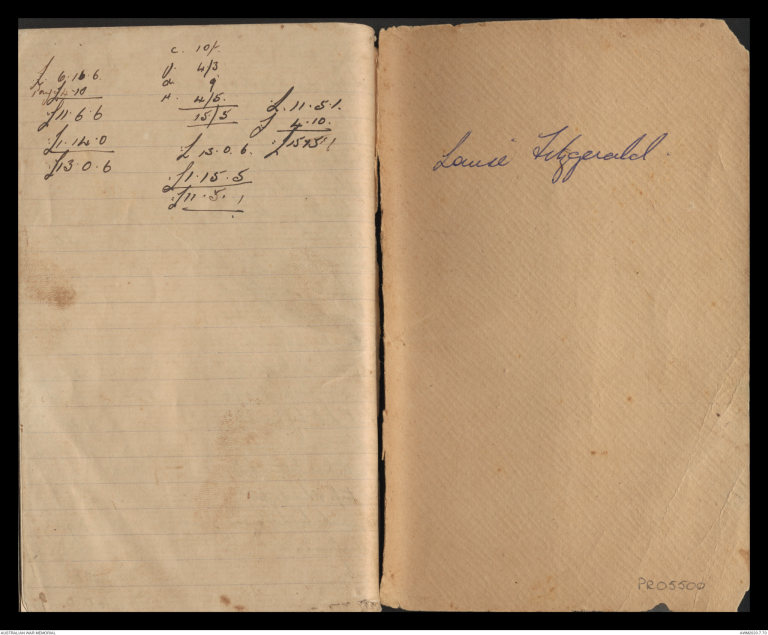 £ 6.16.6
Pay £4.10
£11.6.6
£1.14.0
£13.0.6
C. 10/-
4/3
9
4/5
15/5
£ 13.0.6.
£1.15.5
£11.5.1
£.11.5.1.
£ 4.10.
£15.15.1
Louise Fitzgerald.
PR05500
AUSTRALIAN WAR MEMORIAL
AWM2020.7.73